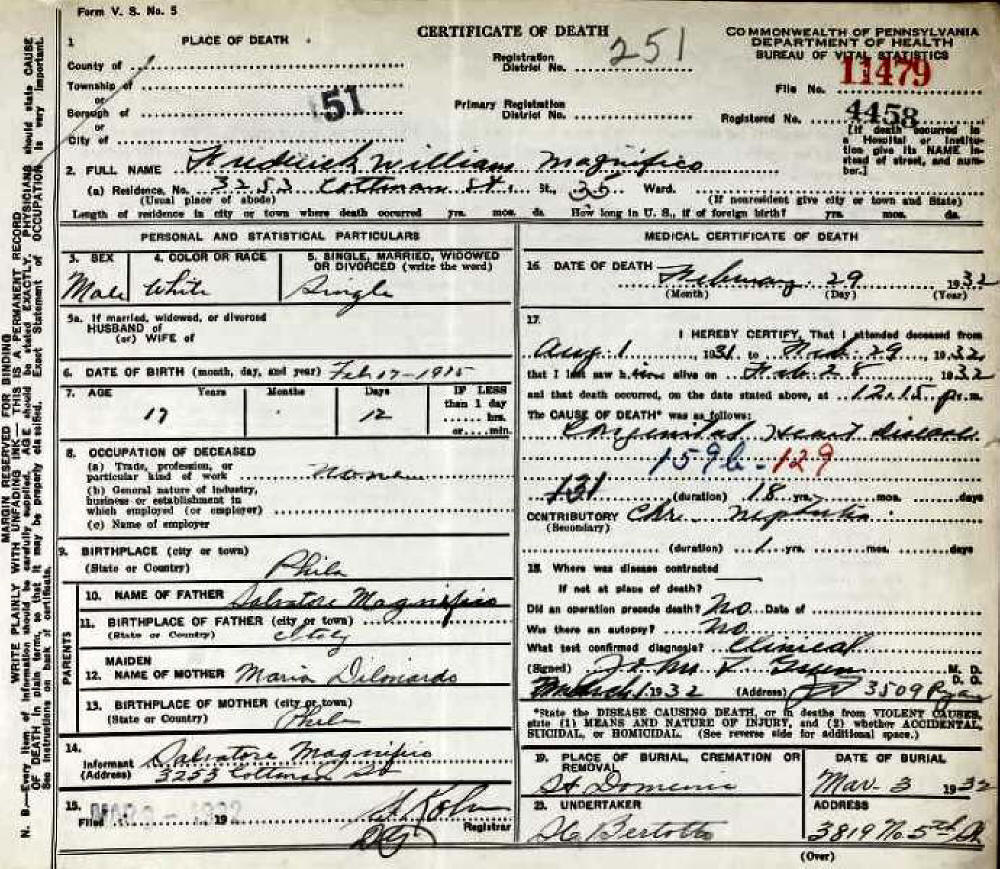 Form V. S. No. 5
CERTIFICATE OF DEATH
COMMONWEALTH OF PENNSYLVANIA
DEPARTMENT OF HEALTH
BUREAU OF VITAL STATISTICS
1 PLACE OF DEATH
County of
Township of
or
Borough of
or
City of
51
Registration District No. 251
Primary Registration District No.
File No. 11479
Registered No. 4458
[If death occurred in a Hospital or Institution give its NAME instead of street, and number.]
2. FULL NAME Frederick William Magnifico
(a) Residence. No. 3253 Cottman St. St., 35 Ward.
(Usual place of abode) (If nonresident give city or town and State)
Length of residence in city or town where death occurred yrs. mos. ds. How long in U. S., if of foreign birth? yrs. mos. ds.
PERSONAL AND STATISTICAL PARTICULARS
3. SEX Male
4. COLOR OR RACE White
5. SINGLE, MARRIED, WIDOWED OR DIVORCED (write the word) Single
5a. If married, widowed, or divorced
HUSBAND of
(or) WIFE of
6. DATE OF BIRTH (month, day, and year) Feb 17-1915
7. AGE Years Months Days IF LESS than 1 day
17 12 ...... hrs.
or .... min.
8. OCCUPATION OF DECEASED
(a) Trade, profession, or particular kind of work none
(b) General nature of industry, business or establishment in which employed (or employer)
(c) Name of employer
9. BIRTHPLACE (city or town)
(State or Country) Phila
PARENTS
10. NAME OF FATHER Salvatore Magnifico
11. BIRTHPLACE OF FATHER (city or town)
(State or Country) Italy
12. MAIDEN NAME OF MOTHER Maria Dilonardo
13. BIRTHPLACE OF MOTHER (city or town)
(State or Country) Phila
14. Informant Salvatore Magnifico
(Address) 3253 Cottman St
15. Filed 19 Registrar
MEDICAL CERTIFICATE OF DEATH
16. DATE OF DEATH February 29 1932
(Month) (Day) (Year)
17. I HEREBY CERTIFY, That I attended deceased from
Aug 1, 1931 to Feb. 29, 1932,
that I last saw him alive on Feb 28, 1932
and that death occurred, on the date stated above, at 12.15 p.m.
The CAUSE OF DEATH* was as follows:
Congenital Heart disease
159b-129
131 (duration) 18 yrs. mos. days
CONTRIBUTORY Chr. Nephritis
(Secondary)
(duration) 1 yrs. mos. days
18. Where was disease contracted
If not at place of death?
Did an operation precede death? No Date of
Was there an autopsy? No
What test confirmed diagnosis? Clinical
(Signed) John M. D.
D. O.
March 1 1932 (Address) 3509 Ryan
*State the DISEASE CAUSING DEATH, or in deaths from VIOLENT CAUSES, state (1) MEANS AND NATURE OF INJURY, and (2) whether ACCIDENTAL, SUICIDAL, or HOMICIDAL. (See reverse side for additional space.)
19. PLACE OF BURIAL, CREMATION OR REMOVAL
St Domenic
DATE OF BURIAL
Mar. 3 1932
20. UNDERTAKER
Bertotto
ADDRESS
3819 No 5th St
(Over)
MARGIN RESERVED FOR BINDING
WRITE PLAINLY WITH UNFADING INK—THIS IS A PERMANENT RECORD
N. B.—Every item of information should be carefully supplied. AGE should be stated EXACTLY. PHYSICIANS should state CAUSE
OF DEATH in plain terms, so that it may be properly classified. Exact Statement of OCCUPATION is very important.
See instructions on back of certificate.